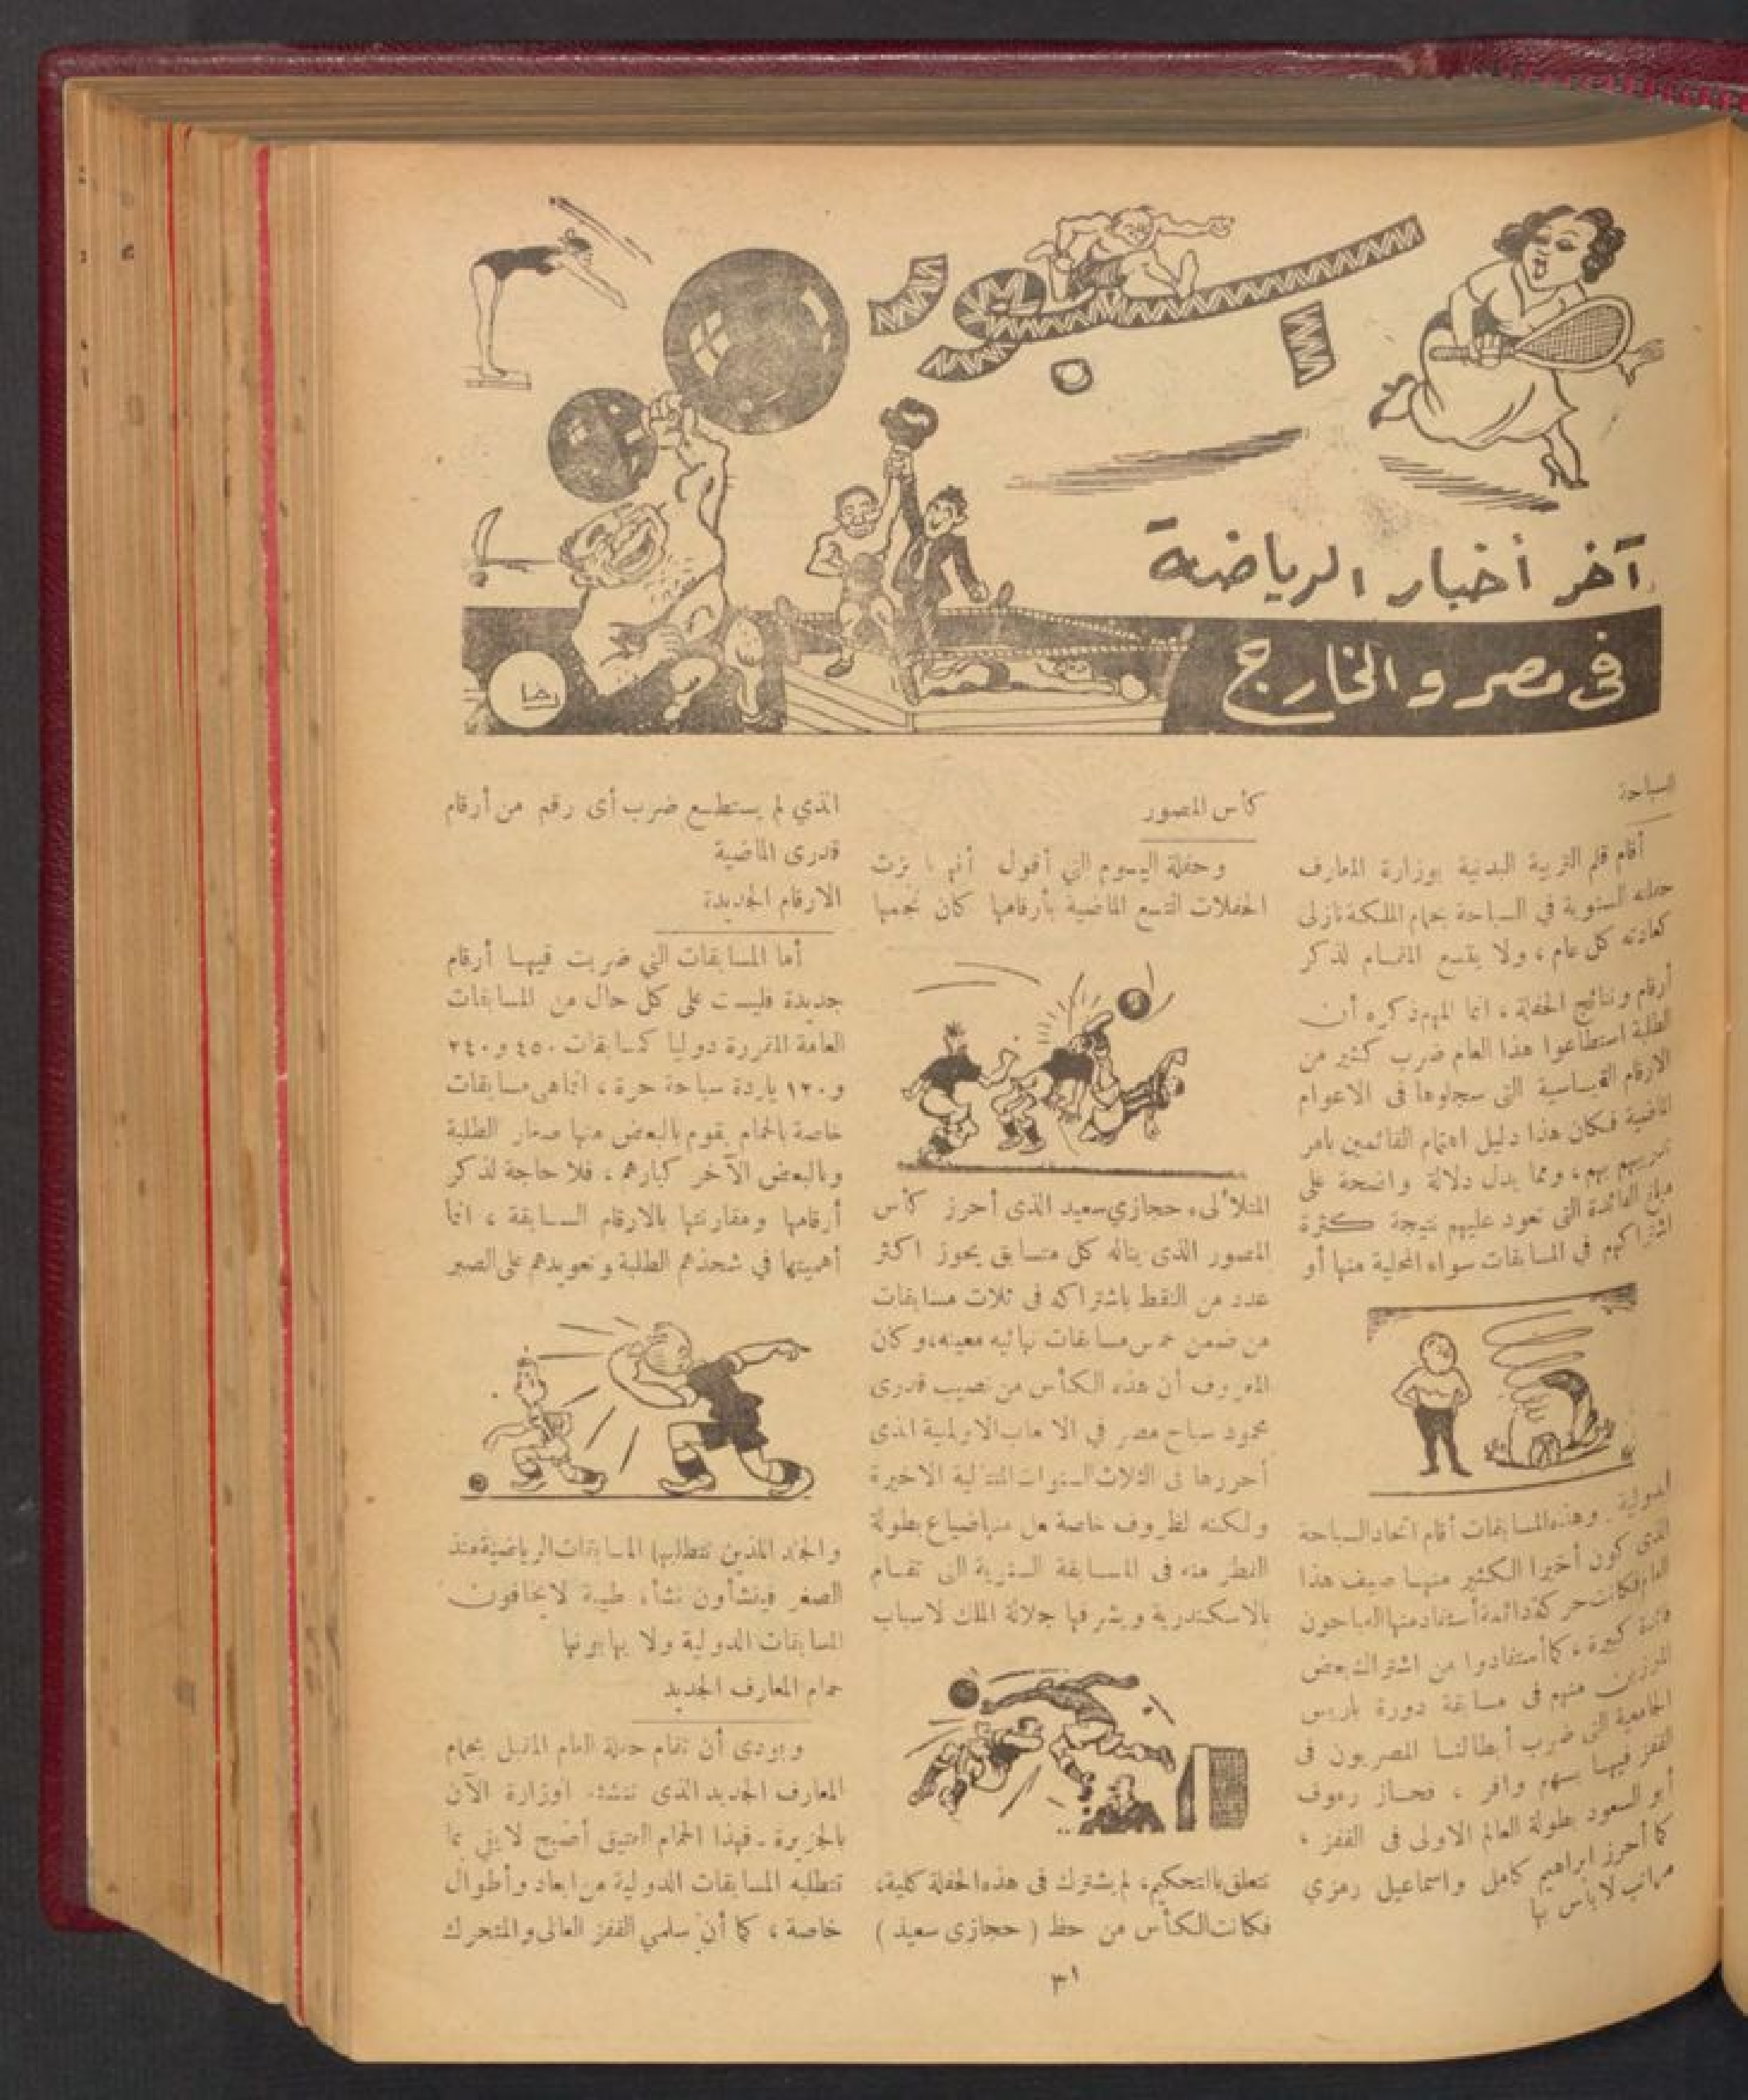 سبور
آخر أخبار الرياضة
فى مصر والخارج
رخا
السباحة
أقام قلم التربية البدنية بوزارة المعارف
حفلته السنوية في السباحة بحمام الملكة نازلى
كعادته كل عام ، ولا يتسع المقام لذكر
أرقام ونتائج الحفلة ، انما المهم ذكره أن
الطلبة استطاعوا هذا العام ضرب كثير من
الارقام القياسية التى سجلوها فى الاعوام
الماضية فكان هذا دليل اهتمام القائمين بامر
تدريبهم بهم ، ومما يدل دلالة واضحة على
مبلغ الفائدة التى تعود عليهم نتيجة كثرة
اشتراكهم في المسابقات سواء المحلية منها أو
الدولية . وهذه المسابقات أقام اتحاد السباحة
الذى كون أخيرا الكثير منها صيف هذا
العام فكانت حركة دائمة أستفاد منها السباحون
فائدة كبيرة ، كما أستفادوا من اشتراك بعض
المبرزين منهم فى مسابقة دورة باريس
الجامعية التى ضرب أبطالنا المصريون فى
القفز فيها بسهم وافر ، فحاز رءوف
أبو السعود بطولة العالم الاولى فى القفز ،
كما أحرز ابراهيم كامل واسماعيل رمزي
مراتب لا بأس بها
كأس المصور
وحفلة اليوم التي أقول أنها بزت
الحفلات التسع الماضية بأرقامها كان نجمها
المتلألىء حجازي سعيد الذى أحرز كأس
المصور الذى يناله كل متسابق يحوز اكثر
عدد من النقط باشتراكه فى ثلاث مسابقات
من ضمن خمس مسابقات نهائيه معينه ، وكان
المعروف أن هذه الكأس من نصيب قدرى
محمود سباح مصر في الالعاب الاولمبية الذى
أحرزها فى الثلاث السنوات المتتالية الاخيرة
ولكنه لظروف خاصة ضياع بطولة
القطر منه فى المسابقة السنوية التى تقام
بالاسكندرية ويشرفها جلالة الملك لاسباب
تتعلق بالتحكيم ، لم يشترك فى هذه الحفلة كلية ،
فكانت الكأس من حظ ( حجازى سعيد )
الذي لم يستطع ضرب أى رقم من أرقام
قدرى الماضية
الارقام الجديدة
أما المسابقات التي ضربت فيها أرقام
جديدة فليست على كل حال من المسابقات
العامة المقررة دوليا كمسابقات ٤٥٠ و ٢٤٠
و ١٢٠ ياردة سباحة حرة ، انما هى مسابقات
خاصة بالحمام يقوم بالبعض منها صغار الطلبة
وبالبعض الآخر كبارهم . فلا حاجة لذكر
أرقامها ومقارنتها بالارقام السابقة ، انما
أهميتها في شحذهم الطلبة وتعويدهم على الصبر
والجلد اللذين تتطلبها المسابقات الرياضية منذ
الصغر فينشأون نشأة طيبة لا يخافون
المسابقات الدولية ولا يهابونها
حمام المعارف الجديد
وبودى أن تقام حفلة العام المقبل بحمام
المعارف الجديد الذى تنشئه الوزارة الآن
بالجزيرة ـ فهذا الحمام العتيق أصبح لا يفي بما
تتطلبه المسابقات الدولية من ابعاد وأطوال
خاصة ، كما أن سلمي القفز العالى والمتحرك
٣١